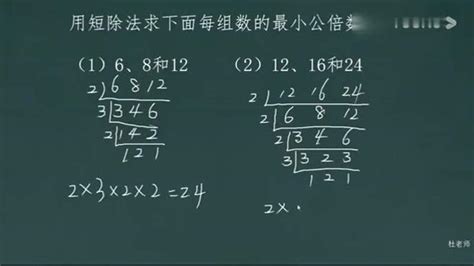 用短除法求下面每组数的最小公倍数
(1)6、8和12
2 6 8 12
3 3 4 6
2 1 4 2
1 2 1
2×3×2×2=24
(2)12、16和24
2 12 16 24
2 6 8 12
2 3 4 6
3 3 2 3
1 2 1
2×
杜老师